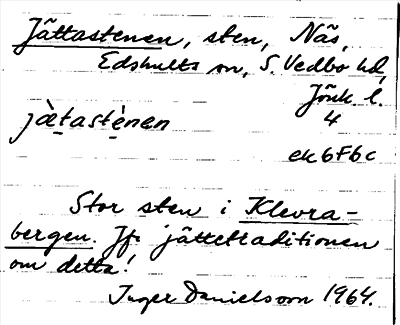 Jättastenen, sten, Näs,
Edshults sn, S. Vedbo hd,
Jönk. l.
jä̀tastè̩nen 4
ek 6F6c
Stor sten i Klevra-
bergen. Jfr jättetraditionen
om detta!
Inger Danielsson 1964.